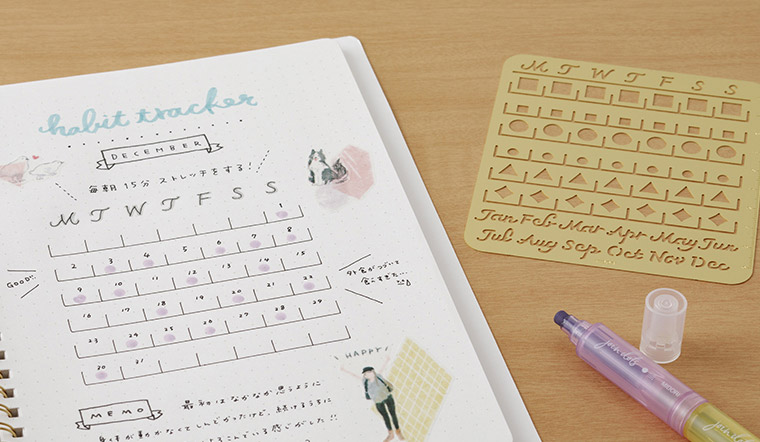 habit tracker
DECEMBER
毎朝15分ストレッチをする!
M T W T F S S
1
2 3 4 5 6 7 8
9 10 11 12 13 14 15
16 17 18 19 20 21 22
23 24 25 26 27 28 29
30 31
GOOD!!
外食がつづいて
食べすぎた…
HAPPY
MEMO
最初はなかなか思うように
が動かなくてしんどかったけど、続けるうちに
いる感じがした!!
M T W T F S S
Jan Feb Mar Apr May Jun
Jul Aug Sep Oct Nov Dec
MIDORI